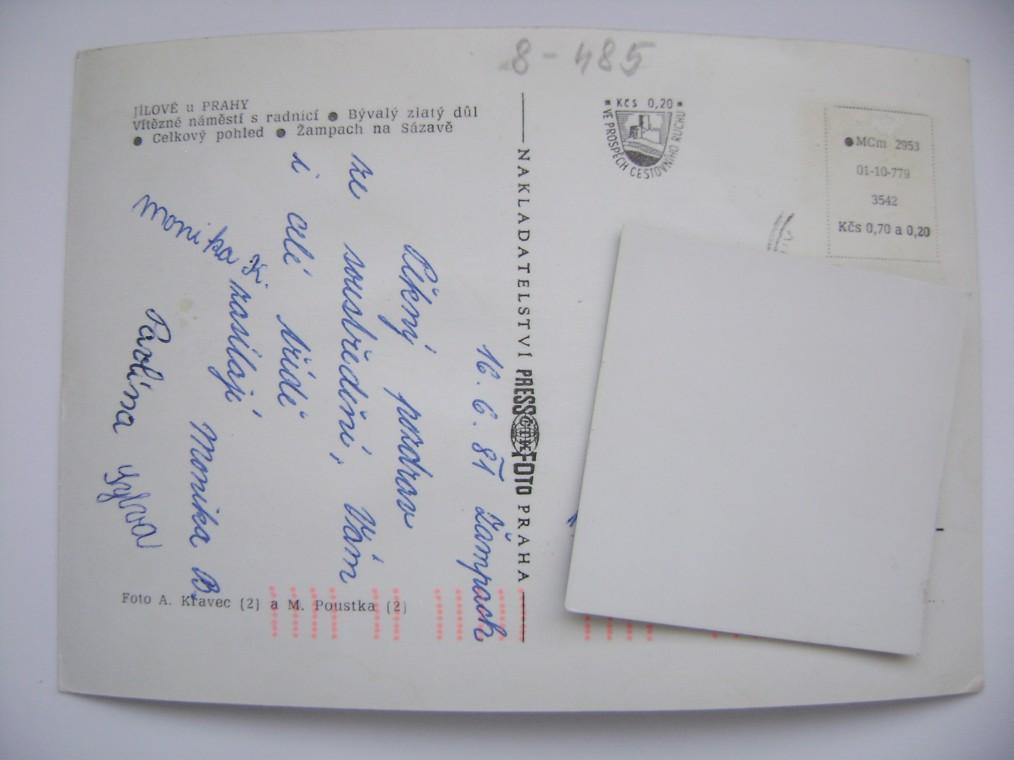 8-485
JÍLOVÉ u PRAHY
Vítězné náměstí s radnicí ● Bývalý zlatý důl
● Celkový pohled ● Žampach na Sázavě
* Kčs 0,20 *
VE PROSPĚCH CESTOVNÍHO RUCHU
● MCm 2953
01-10-779
3542
Kčs 0,70 a 0,20
NAKLADATELSTVÍ PRESSFOTO PRAHA
ČTK
16. 6. 81 Žampach
Pěkný pozdrav
ze soustředění, Vám
i celé třídě
zasílají
Monika B.
Monika K.
Pavlína Sylva
Foto A. Kravec (2) a M. Poustka (2)